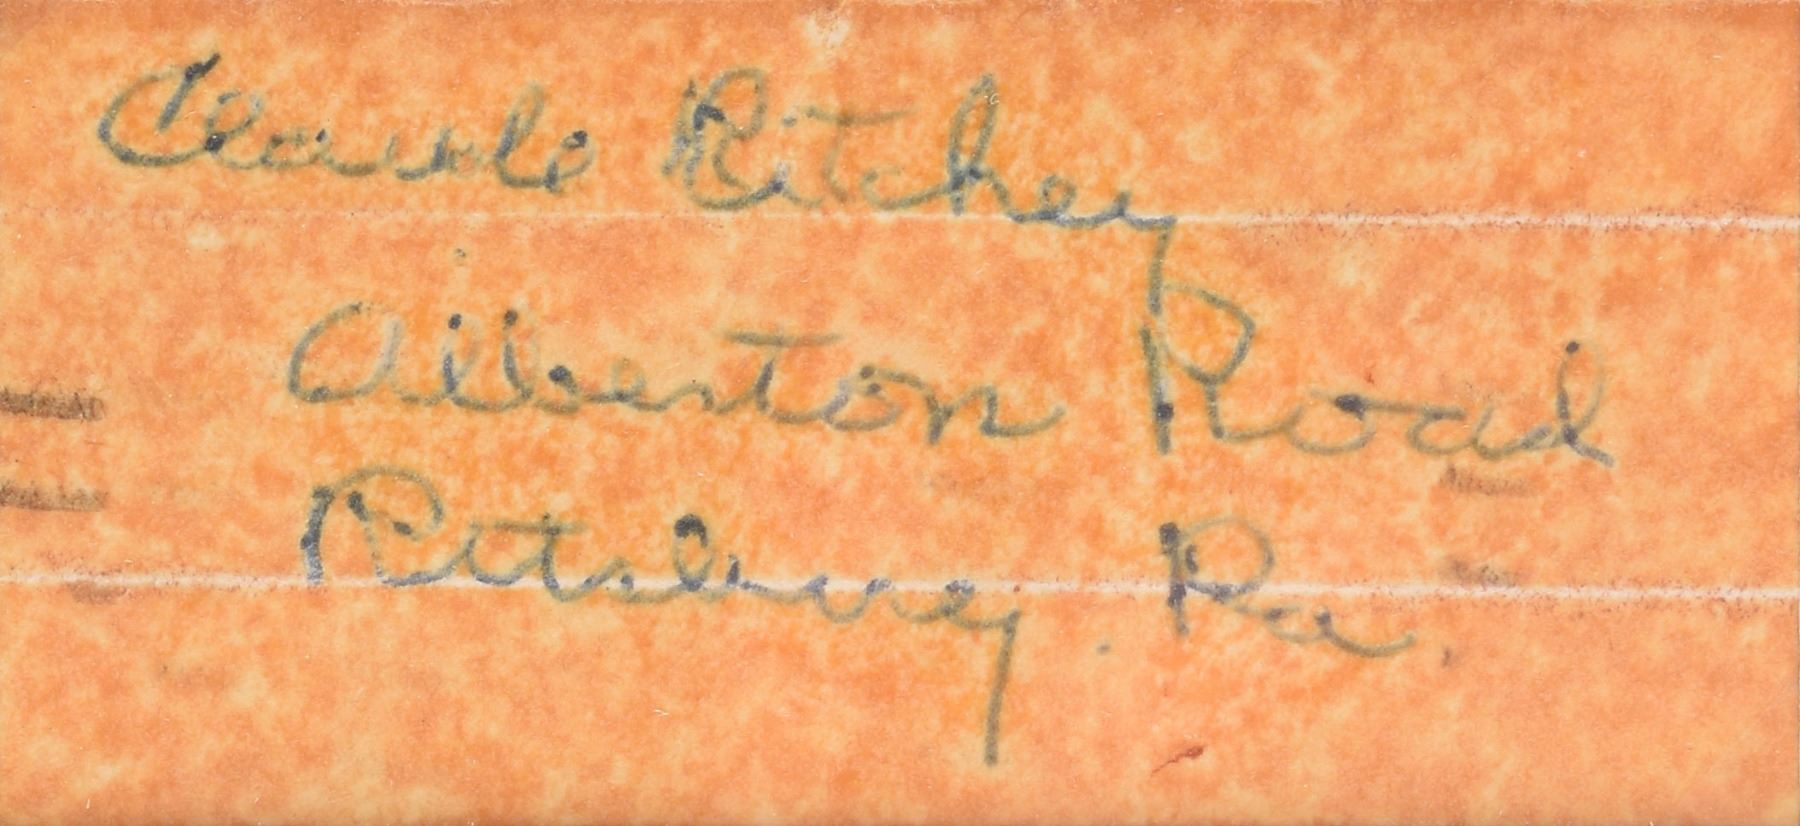 Claude Ritchey
Alberton Road
Pittsburg. Pa.